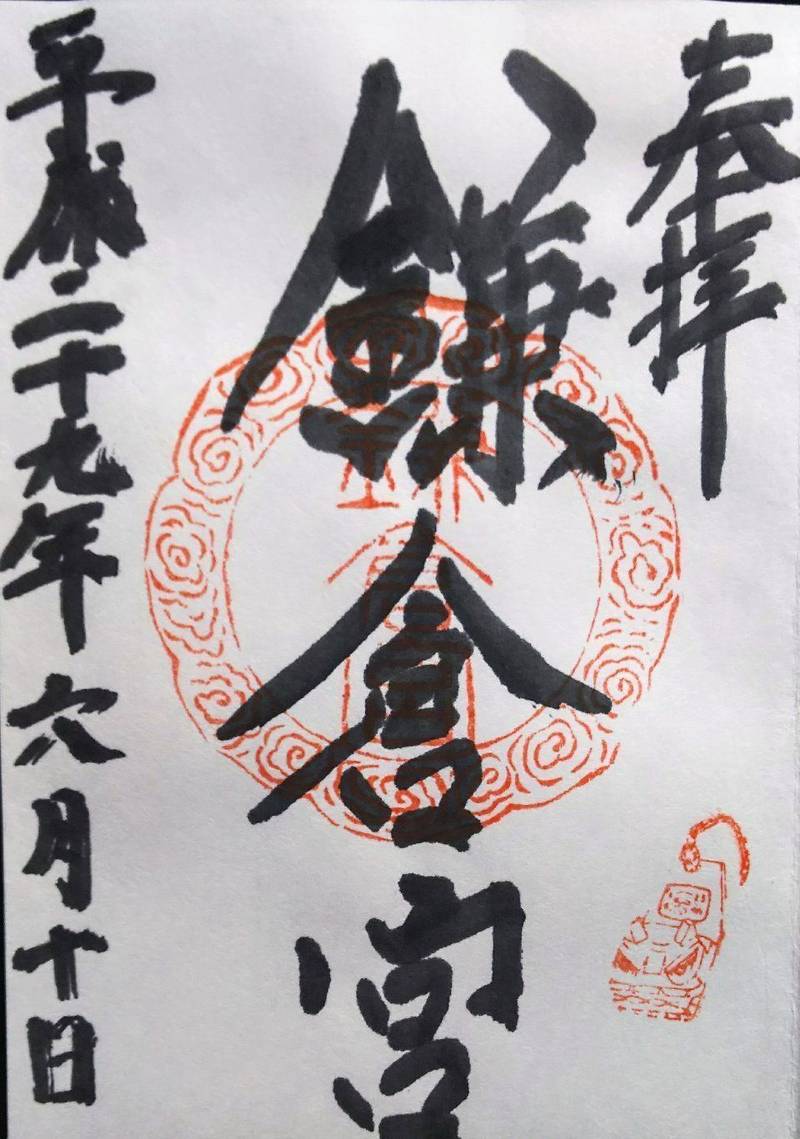 奉拝
鎌倉宮
平成二十九年六月十日